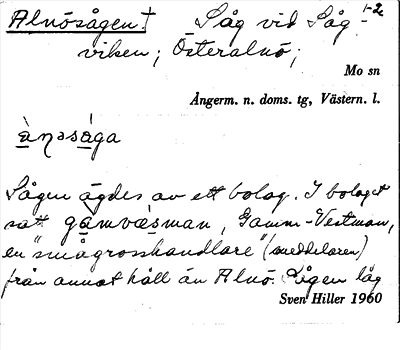 Alnösågen † Såg vid Såg- 1-2
viken; Österalnö;
Mo sn
Ångerm. n. doms. tg, Västern. l.
ànəsága
Sågen ägdes av ett bolag. I bolaget
satt gámvæsman, Gamm-Vestman,
en "smågrosshandlare" (meddelaren)
från annat håll än Alnö. Sågen låg
Sven Hiller 1960